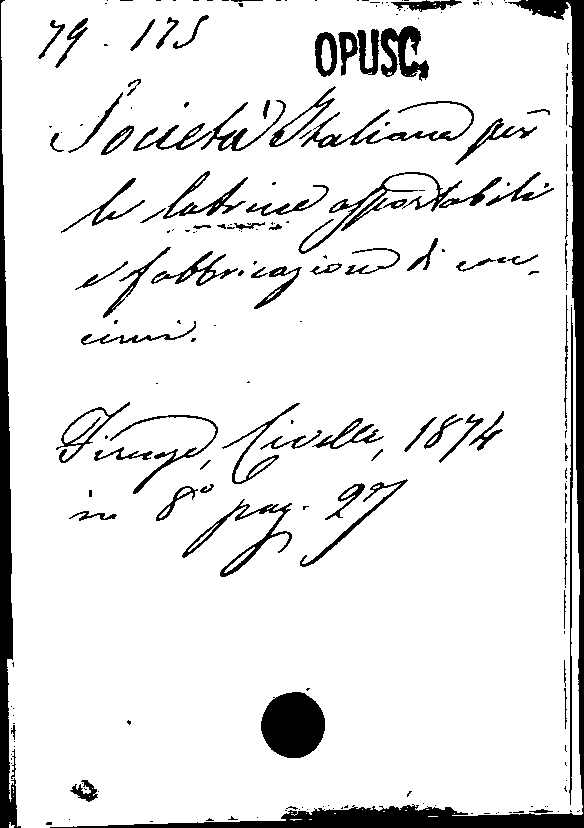 79. 175
OPUSC.
Società Italiana per
le latrine asportabili
e fabbricazione di con-
cimi.
Firenze, Civelli, 1874
in 8° pag. 27